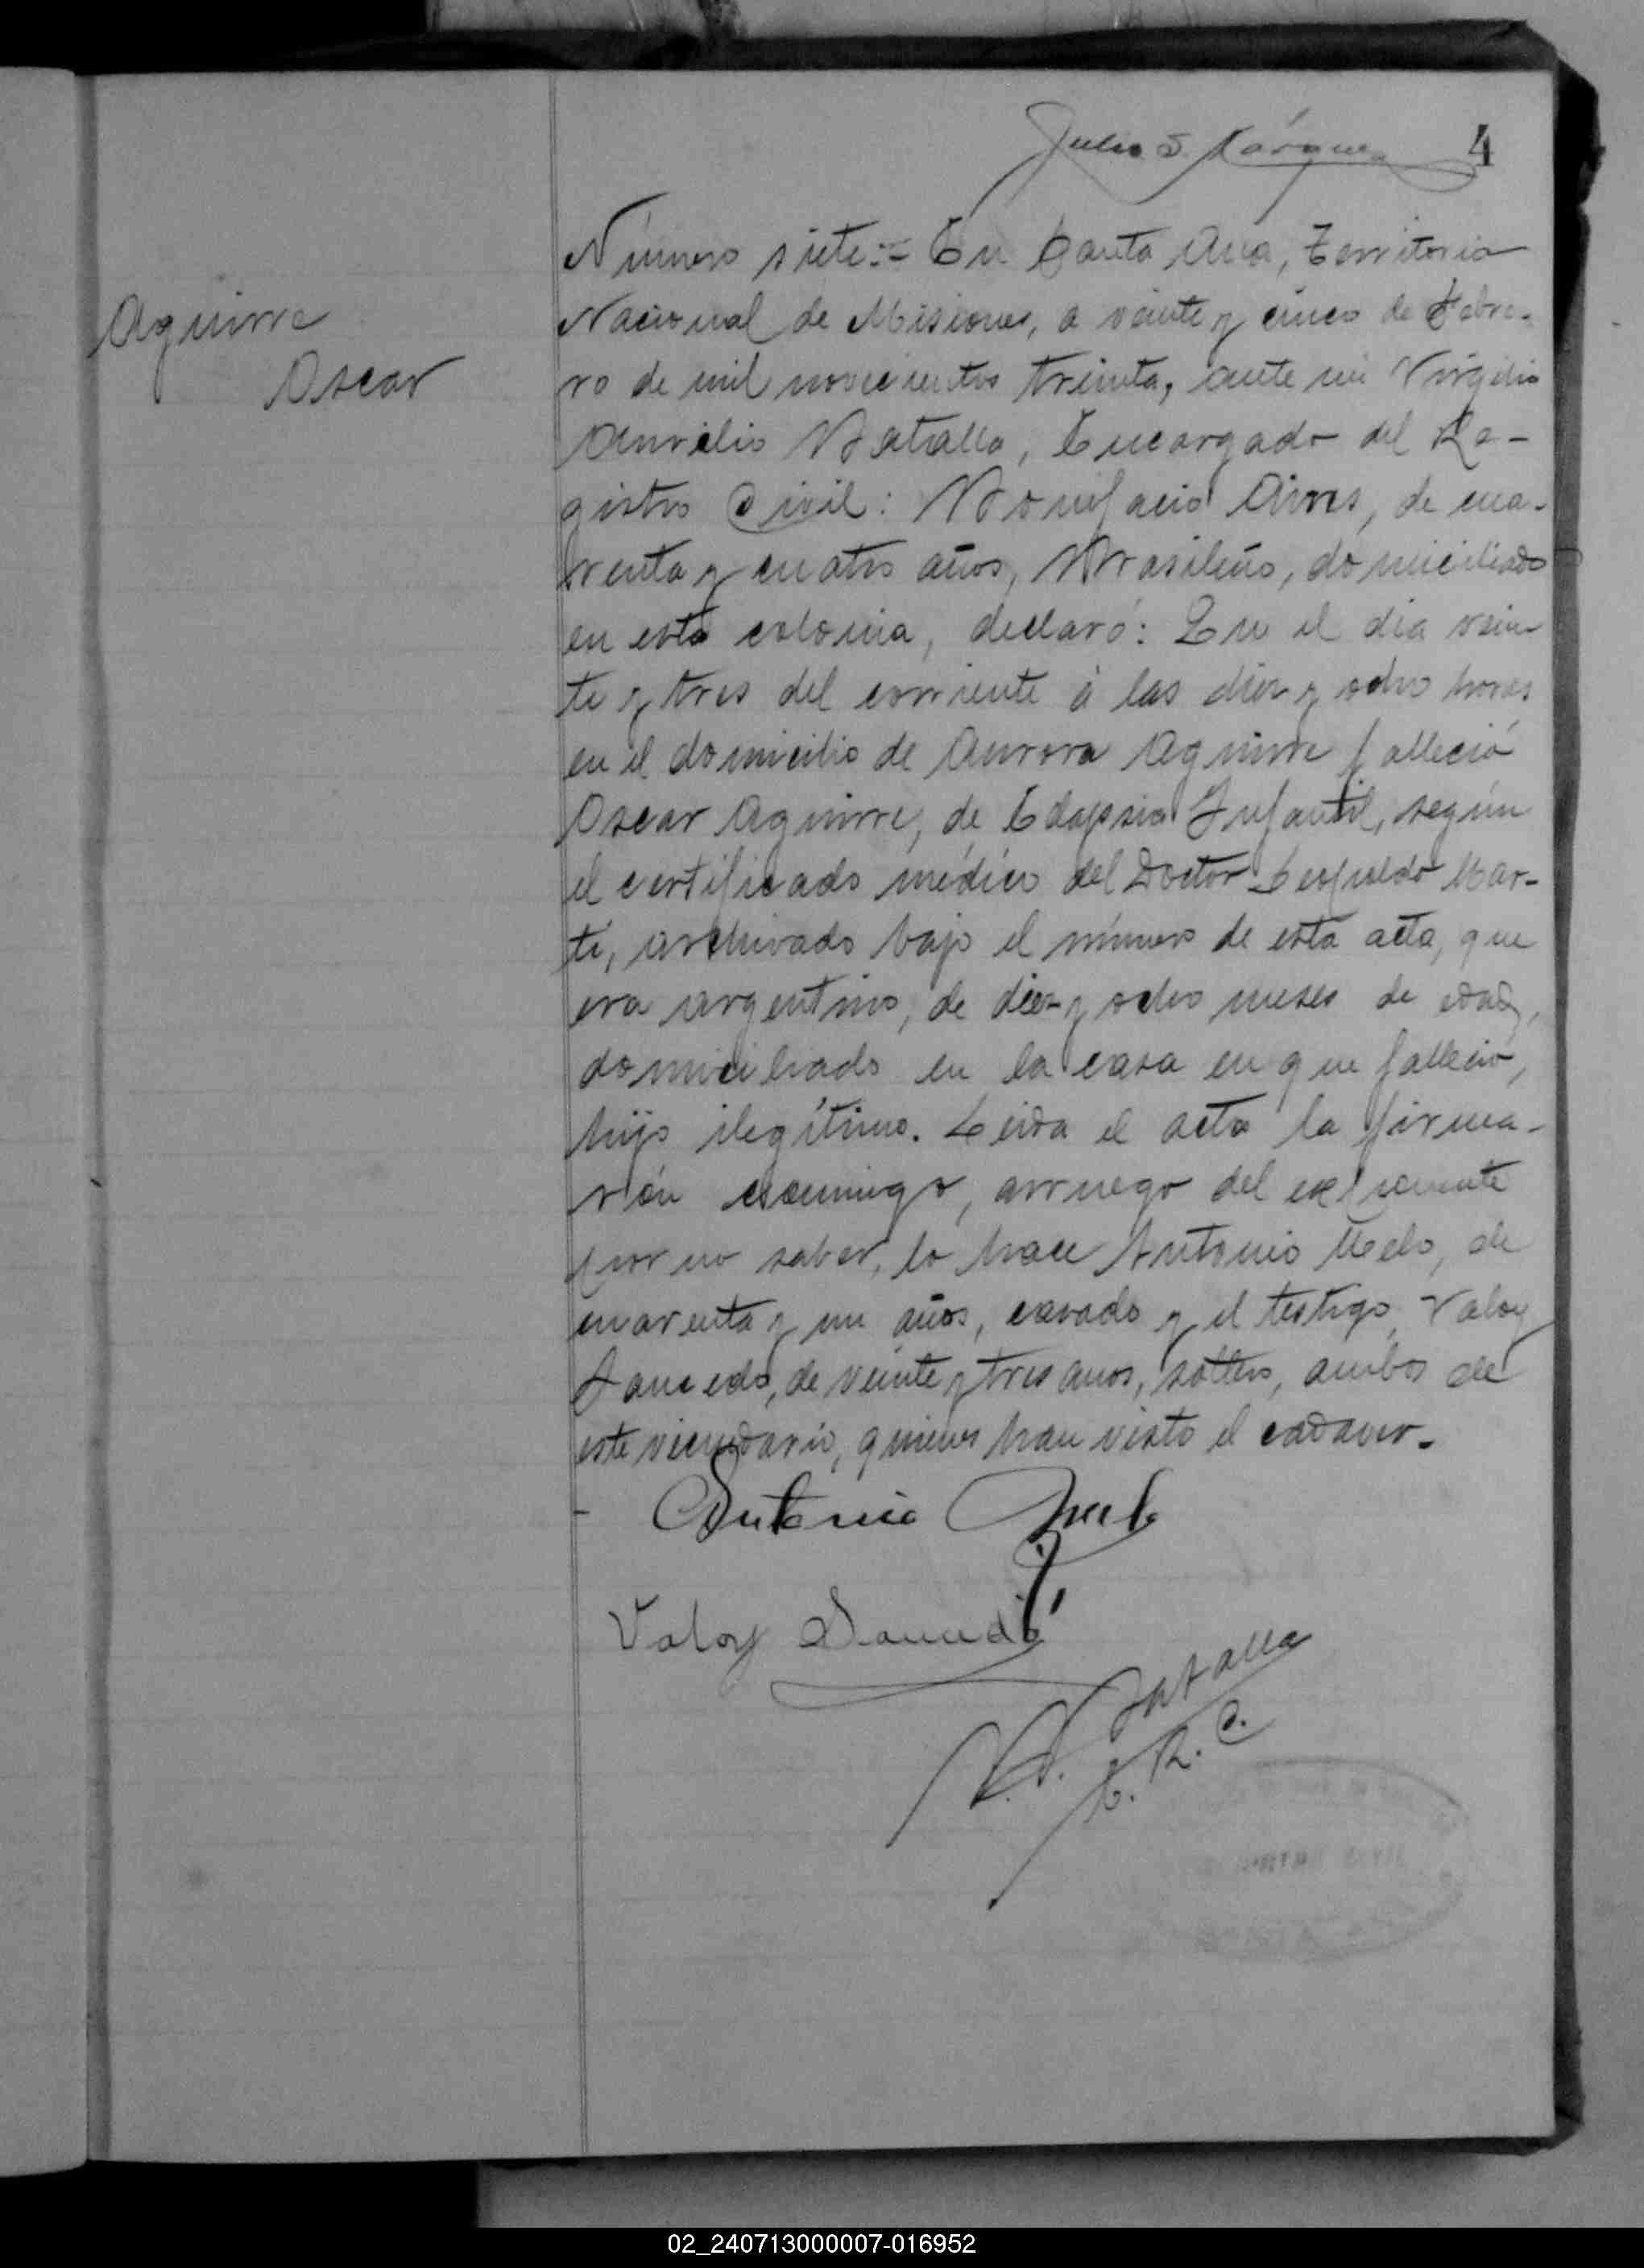 Julio S. Márquez 4
Número siete:= En Santa Ana, Territorio
Aguirre
Nacional de Misiones, a veinte y cinco de Febre-
Oscar
ro de mil novecientos treinta, ante mi Virgilio
Aurelio Batalla, Encargado del Re-
gistro Civil: Bonifacio Aires, de cua-
renta y cuatro años, Brasileño, domiciliado
en esta colonia, declaró: Que el dia vein
te y tres del corriente á las diez y ocho horas
en el domicilio de Aurora Aguirre falleció
Oscar Aguirre, de Infantil, según
el certificado médico del Doctor Leopoldo Mar-
ti, archivado bajo el número de esta acta, que
era argentino, de diez y ocho meses de edad,
domiciliado en la casa en que falleció,
hijo ilegítimo. Leida el acta la firma-
rón conmigo, arruego del exponente
por no saber, lo hace Antonio Melo, de
cuarenta y un años, casado y el testigo, Valoy
de veinte y tres anos, soltero, ambos de
este vecindario, quienes han visto el cadaver.
Antonio Melo
Valoy
V. A. Batalla
E. R. C.
02_240713000007-016952